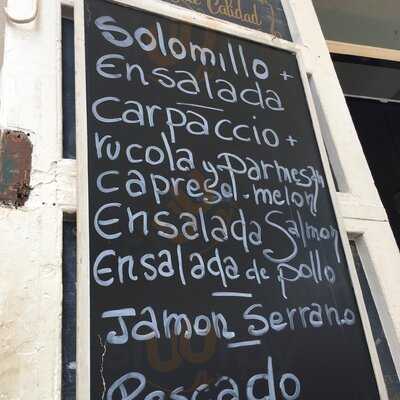 de Calidad
Solomillo +
Ensalada
Carpaccio +
rucola y Parmesan
capresel - melon
Ensalada Salmon
Ensalada de pollo
Jamon Serrano
Pescado